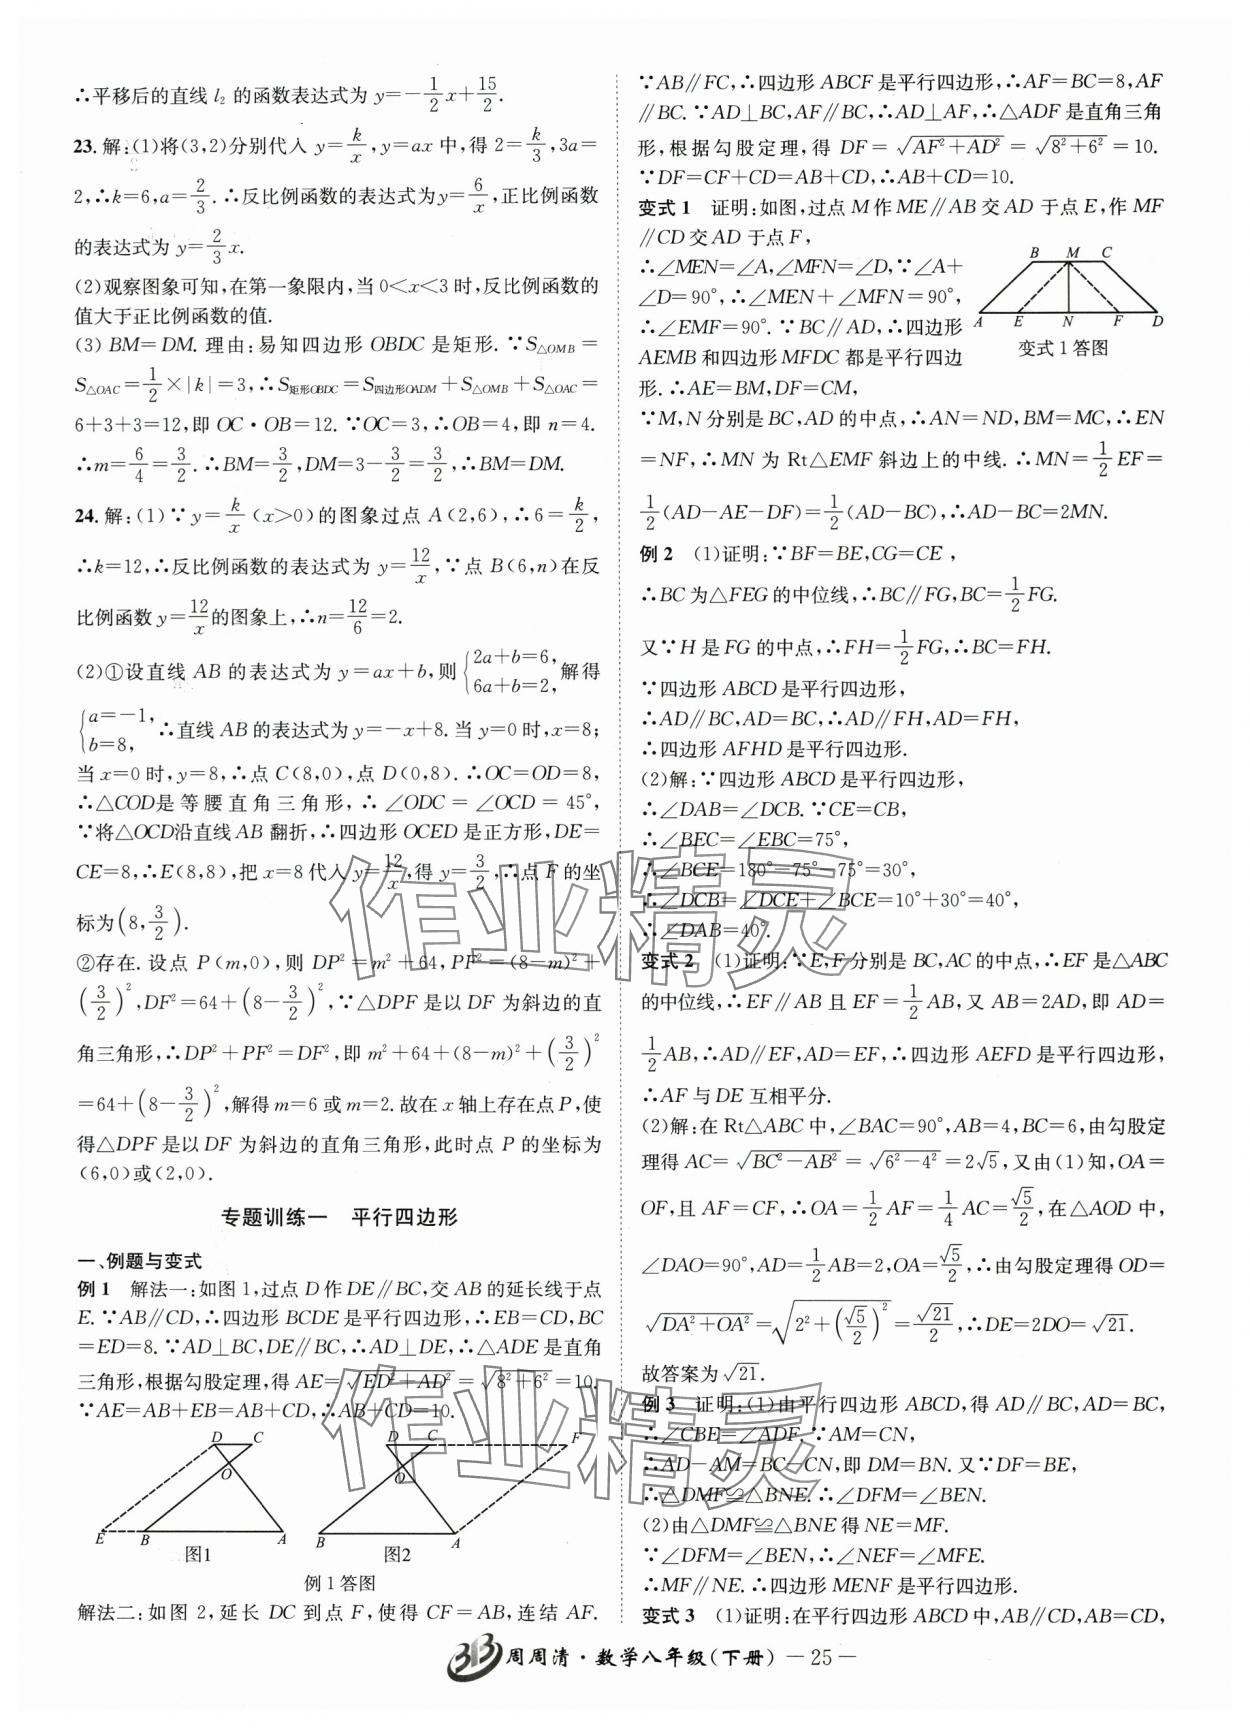 ∴平移后的直线 l₂ 的函数表达式为 y=-1/2x+15/2.
23.解:(1)将(3,2)分别代入 y=k/x,y=ax 中,得 2=k/3,3a=
2,∴k=6,a=2/3.∴反比例函数的表达式为y=6/x,正比例函数
的表达式为 y=2/3x.
(2)观察图象可知,在第一象限内,当 0<x<3 时,反比例函数的
值大于正比例函数的值.
(3) BM=DM. 理由:易知四边形 OBDC 是矩形. ∵S△OMB=
S△OAC=1/2×|k|=3,∴S矩形OBDC=S四边形OADM+S△OMB+S△OAC=
6+3+3=12,即 OC·OB=12. ∵OC=3,∴OB=4,即 n=4.
∴m=6/4=3/2.∴BM=3/2,DM=3-3/2=3/2,∴BM=DM.
24.解:(1)∵y=k/x(x>0)的图象过点 A(2,6),∴6=k/2,
∴k=12,∴反比例函数的表达式为 y=12/x,∵点 B(6,n)在反
比例函数 y=12/x的图象上,∴n=12/6=2.
(2)①设直线 AB 的表达式为 y=ax+b,则{2a+b=6, 6a+b=2,解得
{a=-1, b=8,∴直线 AB 的表达式为 y=-x+8.当 y=0 时,x=8;
当 x=0 时,y=8,∴点 C(8,0),点 D(0,8). ∴OC=OD=8,
∴△COD是等腰直角三角形,∴∠ODC=∠OCD=45°,
∵将△OCD沿直线 AB 翻折,∴四边形 OCED 是正方形,DE=
CE=8,∴E(8,8),把 x=8 代入 y=12/x,得 y=3/2,∴点 F 的坐
标为(8,3/2).
②存在. 设点 P(m,0),则 DP²=m²+64,PF²=(8-m)²+
(3/2)²,DF²=64+(8-3/2)²,∵△DPF 是以 DF 为斜边的直
角三角形,∴DP²+PF²=DF²,即 m²+64+(8-m)²+(3/2)²
=64+(8-3/2)²,解得 m=6 或 m=2. 故在 x 轴上存在点 P,使
得△DPF 是以 DF 为斜边的直角三角形,此时点 P 的坐标为
(6,0)或(2,0).
专题训练一 平行四边形
一、例题与变式
例 1 解法一:如图 1,过点 D 作 DE∥BC,交 AB 的延长线于点
E. ∵AB∥CD,∴四边形 BCDE 是平行四边形,∴EB=CD,BC
=ED=8. ∵AD⊥BC,DE∥BC,∴AD⊥DE,∴△ADE 是直角
三角形,根据勾股定理,得 AE=√(ED²+AD²)=√(8²+6²)=10.
∵AE=AB+EB=AB+CD,∴AB+CD=10.
D C
O
E B A
图1
D C F
O
B A
图2
例 1 答图
解法二:如图 2,延长 DC 到点 F,使得 CF=AB,连结 AF.
∵AB∥FC,∴四边形 ABCF 是平行四边形,∴AF=BC=8,AF
∥BC. ∵AD⊥BC,AF∥BC,∴AD⊥AF,∴△ADF 是直角三角
形,根据勾股定理,得 DF=√(AF²+AD²)=√(8²+6²)=10.
∵DF=CF+CD=AB+CD,∴AB+CD=10.
变式 1 证明:如图,过点 M 作 ME∥AB 交 AD 于点 E,作 MF
∥CD 交 AD 于点 F,
∴∠MEN=∠A,∠MFN=∠D,∵∠A+
∠D=90°,∴∠MEN+∠MFN=90°,
∴∠EMF=90°. ∵BC∥AD,∴四边形
AEMB 和四边形 MFDC 都是平行四边
形.∴AE=BM,DF=CM,
B M C
A E N F D
变式 1 答图
∵M,N 分别是 BC,AD 的中点,∴AN=ND,BM=MC,∴EN
=NF,∴MN 为 Rt△EMF 斜边上的中线.∴MN=1/2EF=
1/2(AD-AE-DF)=1/2(AD-BC),∴AD-BC=2MN.
例 2 (1)证明:∵BF=BE,CG=CE,
∴BC 为△FEG 的中位线,∴BC∥FG,BC=1/2FG.
又∵H 是 FG 的中点,∴FH=1/2FG,∴BC=FH.
∵四边形 ABCD 是平行四边形,
∴AD∥BC,AD=BC,∴AD∥FH,AD=FH,
∴四边形 AFHD 是平行四边形.
(2)解:∵四边形 ABCD 是平行四边形,
∴∠DAB=∠DCB. ∵CE=CB,
∴∠BEC=∠EBC=75°,
∴∠BCE=180°-75°-75°=30°,
∴∠DCB=∠DCE+∠BCE=10°+30°=40°,
∴∠DAB=40°.
变式 2 (1)证明:∵E,F 分别是 BC,AC 的中点,∴EF 是△ABC
的中位线,∴EF∥AB 且 EF=1/2AB,又 AB=2AD,即 AD=
1/2AB,∴AD∥EF,AD=EF,∴四边形 AEFD 是平行四边形,
∴AF 与 DE 互相平分.
(2)解:在 Rt△ABC 中,∠BAC=90°,AB=4,BC=6,由勾股定
理得 AC=√(BC²-AB²)=√(6²-4²)=2√5,又由(1)知,OA=
OF,且 AF=CF,∴OA=1/2AF=1/4AC=√5/2,在△AOD 中,
∠DAO=90°,AD=1/2AB=2,OA=√5/2,∴由勾股定理得 OD=
√(DA²+OA²)=√(2²+(√5/2)²)=√21/2,∴DE=2DO=√21.
故答案为√21.
例 3 证明:(1)由平行四边形 ABCD,得 AD∥BC,AD=BC,
∴∠CBE=∠ADF. ∵AM=CN,
∴AD-AM=BC-CN,即 DM=BN. 又∵DF=BE,
∴△DMF≌△BNE.∴∠DFM=∠BEN.
(2)由△DMF≌△BNE 得 NE=MF.
∵∠DFM=∠BEN,∴∠NEF=∠MFE.
∴MF∥NE.∴四边形 MENF 是平行四边形.
变式 3 (1)证明:在平行四边形 ABCD 中,AB∥CD,AB=CD,
作业精灵
作业精灵
周周清·数学八年级(下册) —25—